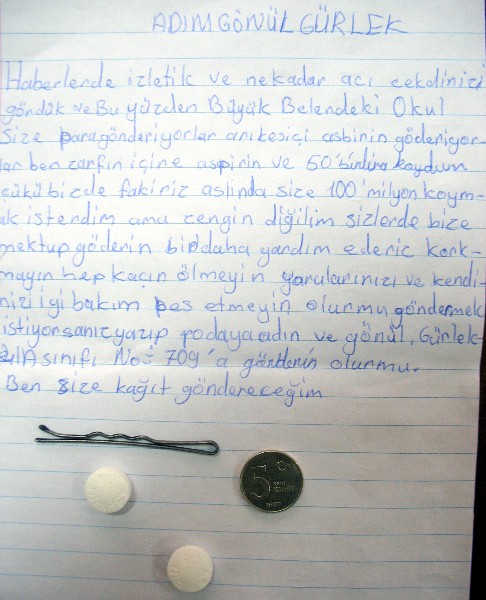 ADIM GÖNÜL GÜRLEK
Haberlerde izletik ve nekadar acı cekdinizi
gördük ve Bu yüzden Büyük Belendeki Okul
Size para gönderiyorlar arıkesiçi asbirin göderiyor-
lar ben zarfın içine aspirin ve 50'bindira koydum
çükü bizde fakiriz aslında size 100'milyon koym-
ak isterdim ama zengin diğilim sizlerde bize
mektup göderin birdaha yardım ederiz kork-
mayın hep kaçın ölmeyin yaralarınızı ve kendi-
nizi iyi bakım pes etmeyin olurmu göndermek
istiyorsanız yazıp podaya adın ve gönül, Gürlek-
A sınıfı No: 709'a gönderin olurmu.
Ben size kağıt göndereceğim
5